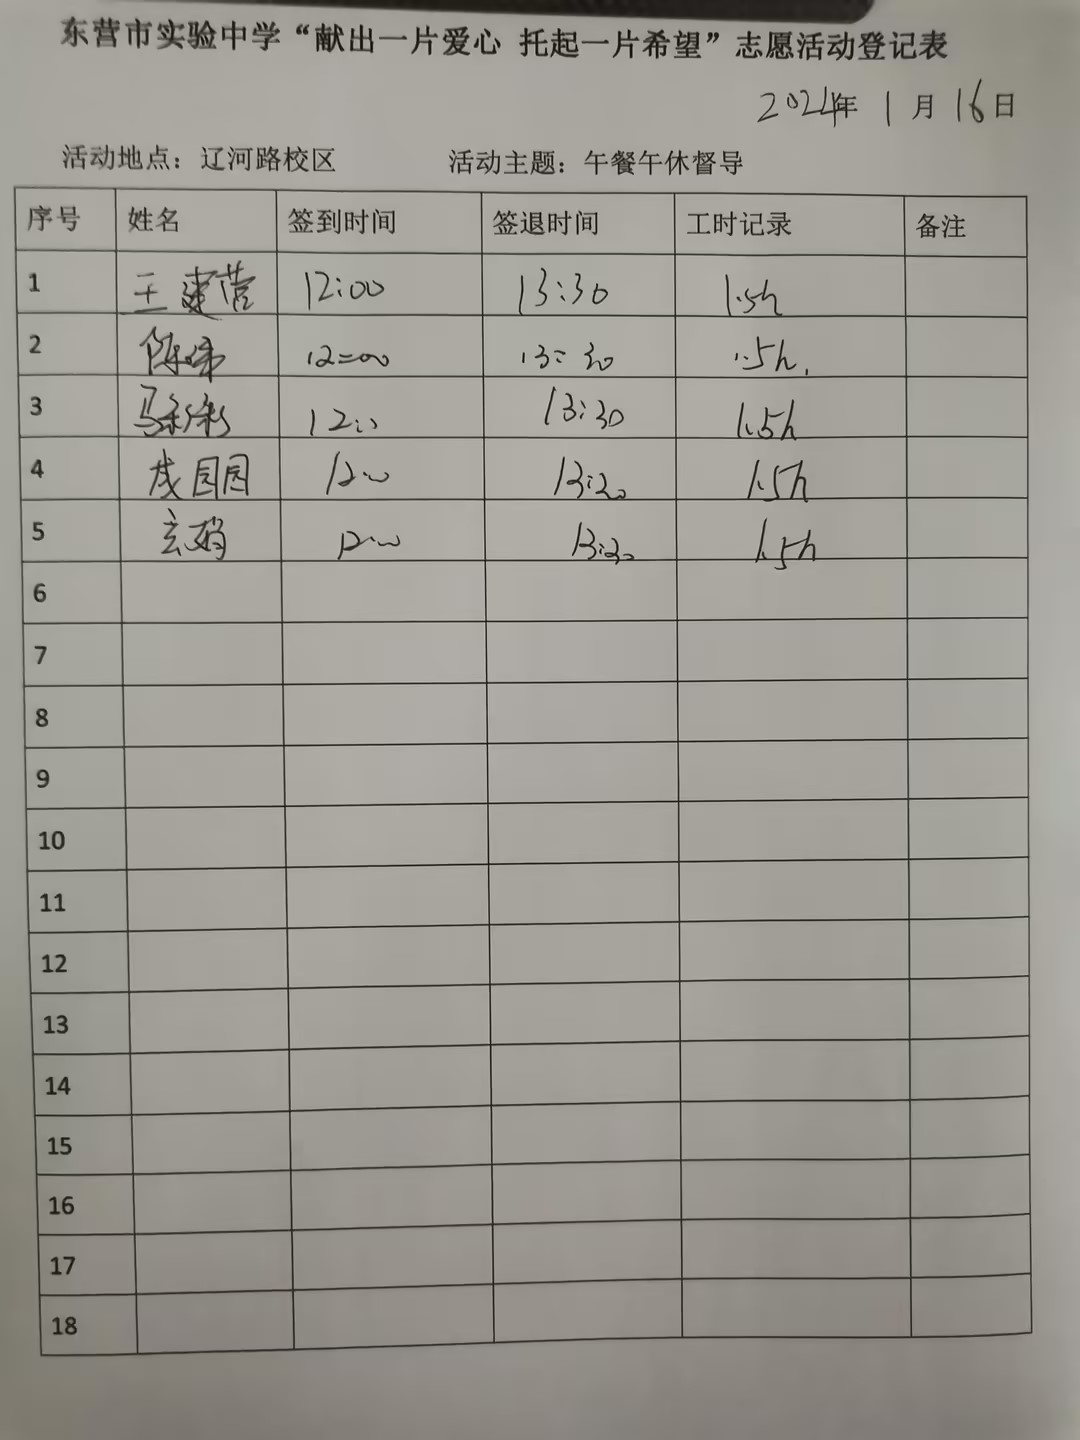 东营市实验中学“献出一片爱心 托起一片希望”志愿活动登记表
2024年 1月 16日
活动地点：辽河路校区 活动主题：午餐午休督导
序号 姓名 签到时间 签退时间 工时记录 备注
1 王建营 12:00 13:30 1.5h
2 陈 12:00 13:30 1.5h.
3 马彩彩 12:00 13:30 1.5h
4 园园 12:00 13:30 1.5h
5 12:00 13:30 1.5h
6
7
8
9
10
11
12
13
14
15
16
17
18